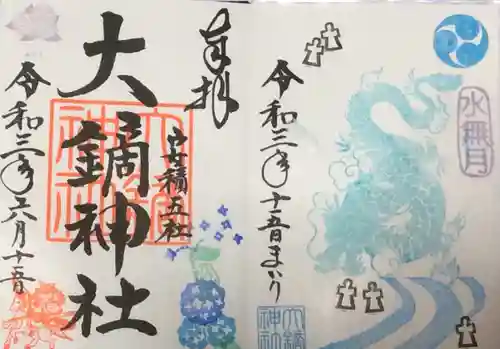 水無月
令和三年十五日まいり
大鏑神社
奉拝
安積五社
大鏑神社
大鏑神社
令和三年六月十五日